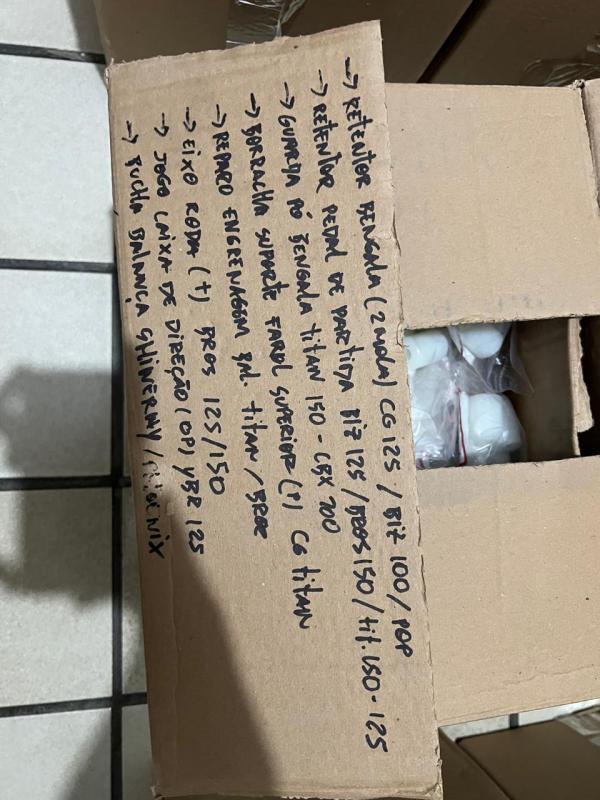 → RETENTOR BENGALA (2 MOLA) CG 125 / BIZ 100 / POP
→ RETENTOR PEDAL DE PARTIDA BIZ 125 / BROS 150 / TIT. 150 - 125
→ GUARDA PÓ BENGALA TITAN 150 - CBX 200
→ BORRACHA SUPORTE FAROL SUPERIOR (P) CG TITAN
→ REPARO ENGRENAGEM BAL. TITAN / BROS
→ EIXO RODA (T) BROS 125/150
→ JOGO CAIXA DE DIREÇÃO (DP) YBR 125
→ BUCHA BALANÇA SHINERAY / PHOENIX